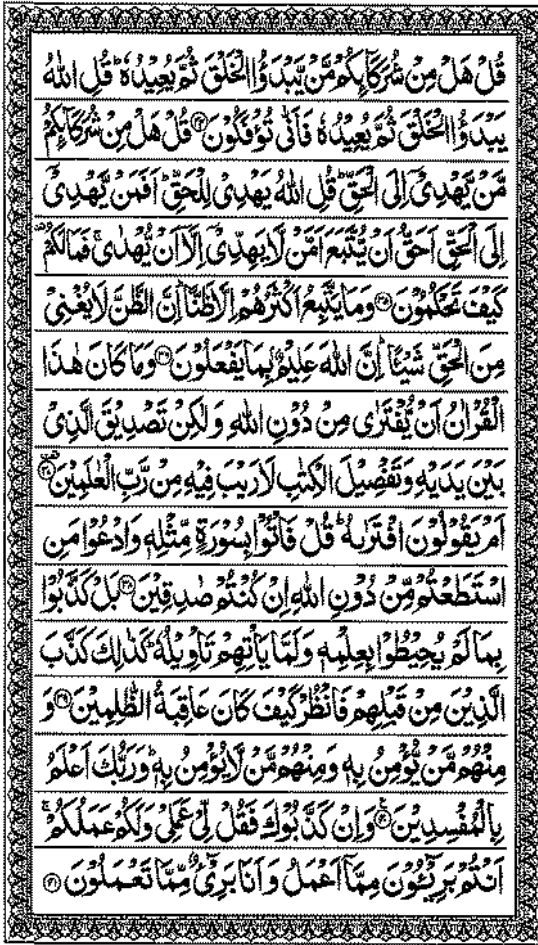 قُلْ هَلْ مِنْ شُرَكَآئِكُمْ مَّنْ يَّبْدَؤُا الْخَلْقَ ثُمَّ يُعِيْدُهٗ ؕ قُلِ اللّٰهُ
يَبْدَؤُا الْخَلْقَ ثُمَّ يُعِيْدُهٗ فَاَنّٰى تُؤْفَكُوْنَ ﴿۳۴﴾ قُلْ هَلْ مِنْ شُرَكَآئِكُمْ
مَّنْ يَّهْدِيْۤ اِلَى الْحَقِّ ؕ قُلِ اللّٰهُ يَهْدِيْ لِلْحَقِّ ؕ اَفَمَنْ يَّهْدِيْۤ
اِلَى الْحَقِّ اَحَقُّ اَنْ يُّتَّبَعَ اَمَّنْ لَّا يَهِدِّيْۤ اِلَّاۤ اَنْ يُّهْدٰى ۚ فَمَا لَكُمْ ۫
كَيْفَ تَحْكُمُوْنَ ﴿۳۵﴾ وَمَا يَتَّبِعُ اَكْثَرُهُمْ اِلَّا ظَنًّا ؕ اِنَّ الظَّنَّ لَا يُغْنِيْ
مِنَ الْحَقِّ شَيْـًٔا ؕ اِنَّ اللّٰهَ عَلِيْمٌۢ بِمَا يَفْعَلُوْنَ ﴿۳۶﴾ وَمَا كَانَ هٰذَا
الْقُرْاٰنُ اَنْ يُّفْتَرٰى مِنْ دُوْنِ اللّٰهِ وَلٰكِنْ تَصْدِيْقَ الَّذِيْ
بَيْنَ يَدَيْهِ وَتَفْصِيْلَ الْكِتٰبِ لَا رَيْبَ فِيْهِ مِنْ رَّبِّ الْعٰلَمِيْنَ ﴿۳۷﴾
اَمْ يَقُوْلُوْنَ افْتَرٰىهُ ؕ قُلْ فَاْتُوْا بِسُوْرَةٍ مِّثْلِهٖ وَادْعُوْا مَنِ
اسْتَطَعْتُمْ مِّنْ دُوْنِ اللّٰهِ اِنْ كُنْتُمْ صٰدِقِيْنَ ﴿۳۸﴾ بَلْ كَذَّبُوْا
بِمَا لَمْ يُحِيْطُوْا بِعِلْمِهٖ وَلَمَّا يَاْتِهِمْ تَاْوِيْلُهٗ ؕ كَذٰلِكَ كَذَّبَ
الَّذِيْنَ مِنْ قَبْلِهِمْ فَانْظُرْ كَيْفَ كَانَ عَاقِبَةُ الظّٰلِمِيْنَ ﴿۳۹﴾ وَ
مِنْهُمْ مَّنْ يُّؤْمِنُ بِهٖ وَمِنْهُمْ مَّنْ لَّا يُؤْمِنُ بِهٖ ؕ وَرَبُّكَ اَعْلَمُ
بِالْمُفْسِدِيْنَ ﴿۴۰﴾ وَاِنْ كَذَّبُوْكَ فَقُلْ لِّيْ عَمَلِيْ وَلَكُمْ عَمَلُكُمْ ۚ
اَنْتُمْ بَرِيْٓـُٔوْنَ مِمَّاۤ اَعْمَلُ وَاَنَا بَرِيْٓءٌ مِّمَّا تَعْمَلُوْنَ ﴿۴۱﴾